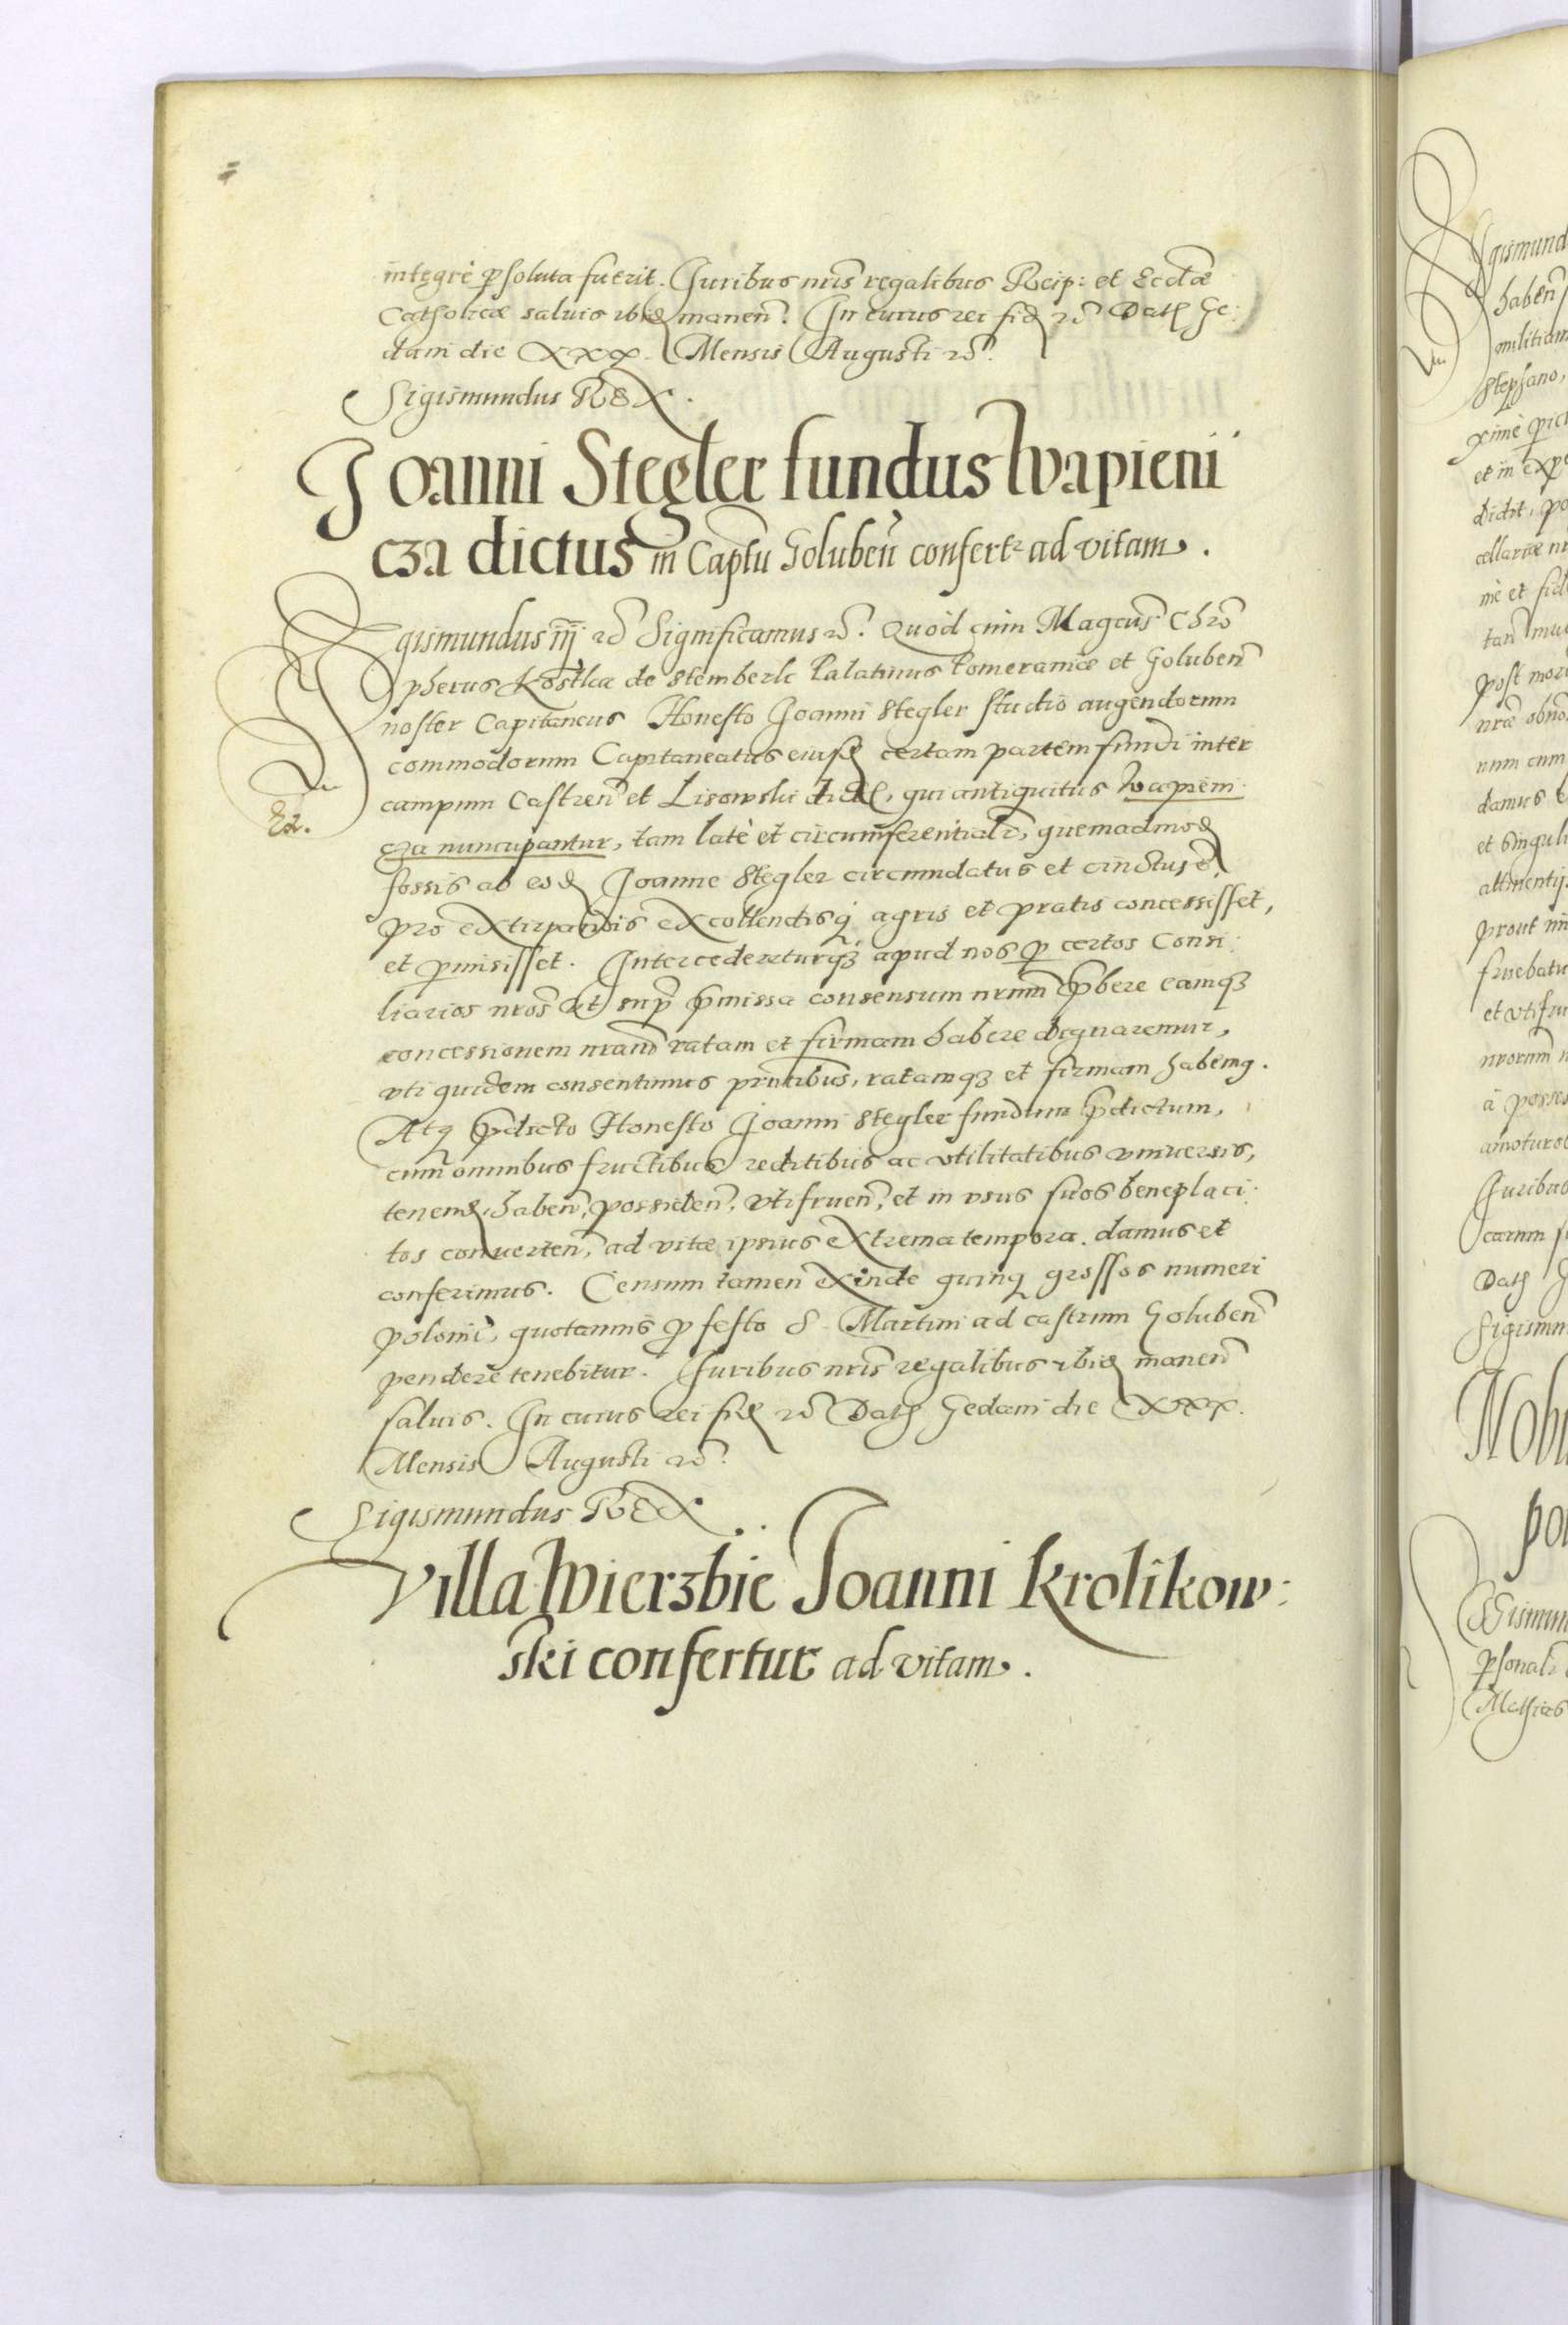 integrè psoluta fuerit. Juribus nris regalibus Reip: et Ecctæ
Catholicæ saluis ibid manen. In cuius rei fid &c Dat Ge:
dani die XXX. Mensis Augusti &c.
Sigismundus REX.
Joanni Stegler fundus Wapieni
cza dictus in Captu Goluben confert ad vitam.
Sigismundus iij &c Significamus &c. Quod cum Magcus Chro
pherus Kostka de Stemberk Palatinus Pomeraniæ et Goluben
noster Capitaneus Honesto Joanni Stegler studio augendorum
commodorum Capitaneatus eiusd certam partem fundi inter
campum Castren et Lisowski dict, qui antiquitus Wapieni
cza nuncupantur, tam latè et circumferentialr, quemadmod
fossis ab eod Joanne Stegler circumdatus et cinctus e,
pro extirpandis excollendisq agris et pratis concessisset,
et pmisisset. Intercedereturq apud nos p certos Consi:
liarios nros ut sup pmissa consensum nrum pbere eamq
concessionem ratam et firmam habere dignaremur,
vti quidem consentimus pntibus, ratamq et firmam habemq.
Atq pdicto Honesto Joanni Stegler fundum pdictum,
cum omnibus fructibus reditibus ac vtilitatibus vniuersis,
tenend, haben, possiden, vtifruen, et in vsus suos beneplaci:
tos conuerten, ad vitæ ipsius extrema tempora. damus et
conferimus. Censum tamen exinde quinq grossos numeri
polonic, quotannis p festo S. Martini ad castrum Goluben
pendere tenebitur. Juribus nris regalibus ibid manen
saluis. In cuius rei fid &c Dat Gedani die XXX.
Mensis Augusti &c.
Sigismundus REX.
Villa Wierzbie Joanni Krolikow:
ski confertur ad vitam.
Sigismund
haben
militiam
Stephano,
et in expe
didit, po
cellariæ nr
post mor
num cum
damus e
et singuli
prout
fruebatu
et vtifru
à posses
Juribus
Dat
Sigismun
Nobi
po
Sigismun
psonali
Mathias